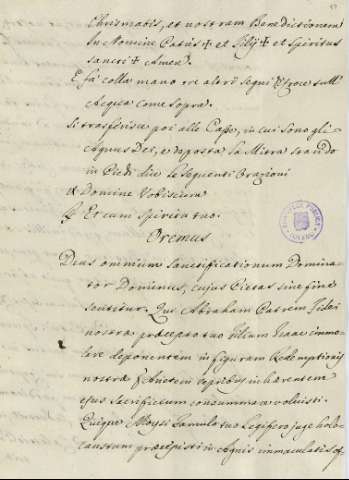 Chrismatis, et nostram Benedictionem
In Nomine Patris ✝ et Filij ✝ et Spiritus
Sancti ✝ Amen.
E fà colla mano tre altri segni di Croce sull'
Acqua come sopra.
Si trasferisce poi alle Casse, in cui sono gli
Agnus Dei, e deposta la Mitra stando
in Piedi dice le seguenti Orazioni
℣ Domine Vobiscum
℟ Et cum Spiritu tuo.
Oremus
Deus omnium Sanctificationum Domina-
tor Dominus, cujus Pietas sine fine
sentitur. Qui Abraham Patrem Fidei
nostræ præcepto tuo filium Isaac immo-
lare deponentem in figuram Redemptionis
nostræ per Arietem vepribus inhærentem
ejus Sacrificium consummare voluisti.
Quique Moysi Famulo tuo Legifero juge holo-
caustum præcepisti in Agnis immaculatis of-